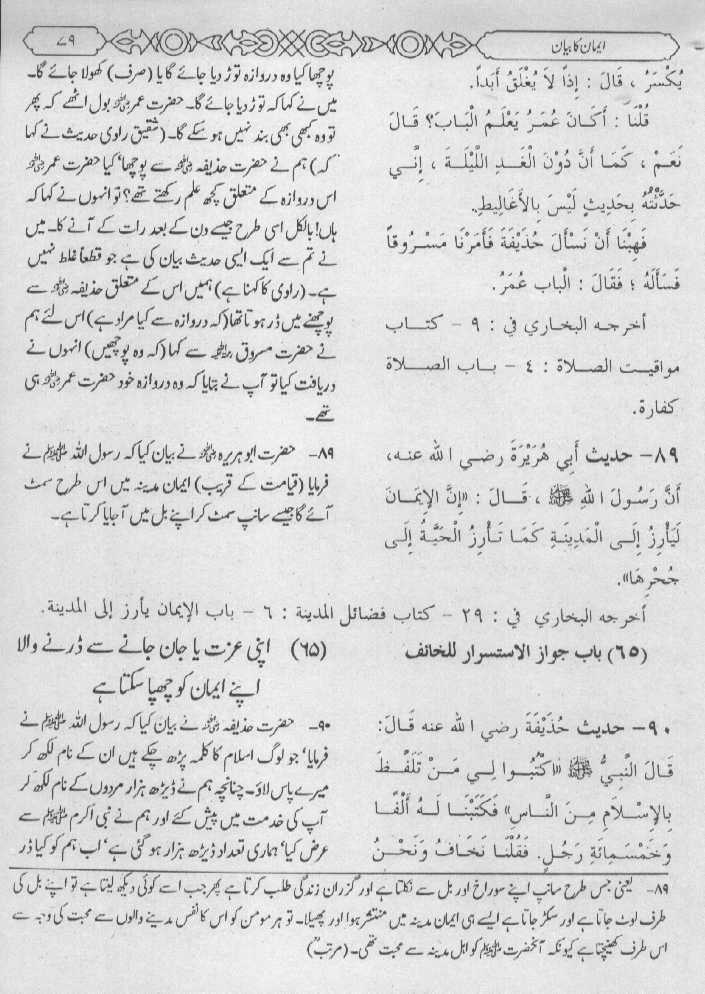 ایمان کا بیان
۷۹
يُكْسَرُ ، قَالَ : إِذًا لاَ يُغْلَقُ أَبَداً.
قُلْنَا : أَكَانَ عُمَرُ يَعْلَمُ الْبَابَ؟ قَالَ
نَعَمْ ، كَمَا أَنَّ دُوْنَ الْغَدِ اللَّيْلَةَ ، إِنَّي
حَدَّثْتُهُ بِحَدِيثٍ لَيْسَ بِالأَغَالِيطِ.
فَهِبْنَا أَنْ نَسْأَلَ حُذَيْفَةَ فَأَمَرْنَا مَسْرُوقاً
فَسَأَلَهُ ؛ فَقَالَ : الْباب عُمَرُ.
أخرجه البخاري في : ٩ - كتاب
مواقيت الصلاة : ٤ - باب الصلاة
كفارة.
٨٩- حديث أَبِي هُرَيْرَةَ رضي الله عنه،
أَنَّ رَسُولَ اللهِ ﷺ ، قَالَ : «إِنَّ الإِيْمَانَ
لَيَأْرِزُ إِلَى الْمَدِينَةِ كَمَا تَأْرِزُ الْحَيَّةُ إِلَى
جُحْرِهَا».
أخرجه البخاري في : ٢٩ - كتاب فضائل المدينة : ٦ - باب الإيمان يأرز إلى المدينة.
(٦٥) باب جواز الاستسرار للخائف
٩٠- حديث حُذَيْفَةَ رضي الله عنه قَالَ:
قَالَ النَّبِيُّ ﷺ «اكْتُبُوا لِي مَنْ تَلَفَّظَ
بِالإِسْلاَمِ مِنَ النَّاسِ» فَكَتَبْنَا لَهُ أَلْفًا
وَخَمْسَمِائَةِ رَجُلٍ. فَقُلْنَا نَخَافُ وَنَحْنُ
پوچھا کیا وہ دروازہ توڑ دیا جائے گا یا (صرف) کھولا جائے گا۔
میں نے کہا کہ توڑ دیا جائے گا۔ حضرت عمر رضی اللہ عنہ بول اٹھے کہ پھر
تو وہ کبھی بھی بند نہیں ہو سکے گا۔ (شقیق راوی حدیث نے کہا
کہ) ہم نے حضرت حذیفہ رضی اللہ عنہ سے پوچھا‘ کیا حضرت عمر رضی اللہ عنہ
اس دروازہ کے متعلق کچھ علم رکھتے تھے؟ تو انہوں نے کہا کہ
ہاں! بالکل اسی طرح جیسے دن کے بعد رات کے آنے کا۔ میں
نے تم سے ایک ایسی حدیث بیان کی ہے جو قطعاً غلط نہیں
ہے۔ (راوی کا کہنا ہے) ہمیں اس کے متعلق حذیفہ رضی اللہ عنہ سے
پوچھنے میں ڈر ہوتا تھا (کہ دروازہ سے کیا مراد ہے) اس لئے ہم
نے حضرت مسروق رحمہ اللہ سے کہا (کہ وہ پوچھیں) انہوں نے
دریافت کیا تو آپ نے بتایا کہ وہ دروازہ خود حضرت عمر رضی اللہ عنہ ہی
تھے۔
۸۹- حضرت ابو ہریرہ رضی اللہ عنہ نے بیان کیا کہ رسول اللہ ﷺ نے
فرمایا (قیامت کے قریب) ایمان مدینہ میں اس طرح سمٹ
آئے گا جیسے سانپ سمٹ کر اپنے بل میں آجایا کرتا ہے۔
(۶۵) اپنی عزت یا جان جانے سے ڈرنے والا
اپنے ایمان کو چھپا سکتا ہے
۹۰- حضرت حذیفہ رضی اللہ عنہ نے بیان کیا کہ رسول اللہ ﷺ نے
فرمایا‘ جو لوگ اسلام کا کلمہ پڑھ چکے ہیں ان کے نام لکھ کر
میرے پاس لاؤ۔ چنانچہ ہم نے ڈیڑھ ہزار مردوں کے نام لکھ کر
آپ کی خدمت میں پیش کئے اور ہم نے نبی اکرم ﷺ سے
عرض کیا‘ ہماری تعداد ڈیڑھ ہزار ہو گئی ہے‘ اب ہم کو کیا ڈر
۸۹- یعنی جس طرح سانپ اپنے سوراخ اور بل سے نکلتا ہے اور گزران زندگی طلب کرتا ہے پھر جب اسے کوئی دیکھ لیتا ہے تو اپنے بل کی
طرف لوٹ جاتا ہے اور سکڑ جاتا ہے ایسے ہی ایمان مدینہ میں منتشر ہوا اور پھیلا۔ تو ہر مومن کو اس کا نفس مدینے والوں سے محبت کی وجہ سے
اس طرف کھینچتا ہے کیونکہ آنحضرت ﷺ کو اہل مدینہ سے محبت تھی۔ (مرتبؒ)